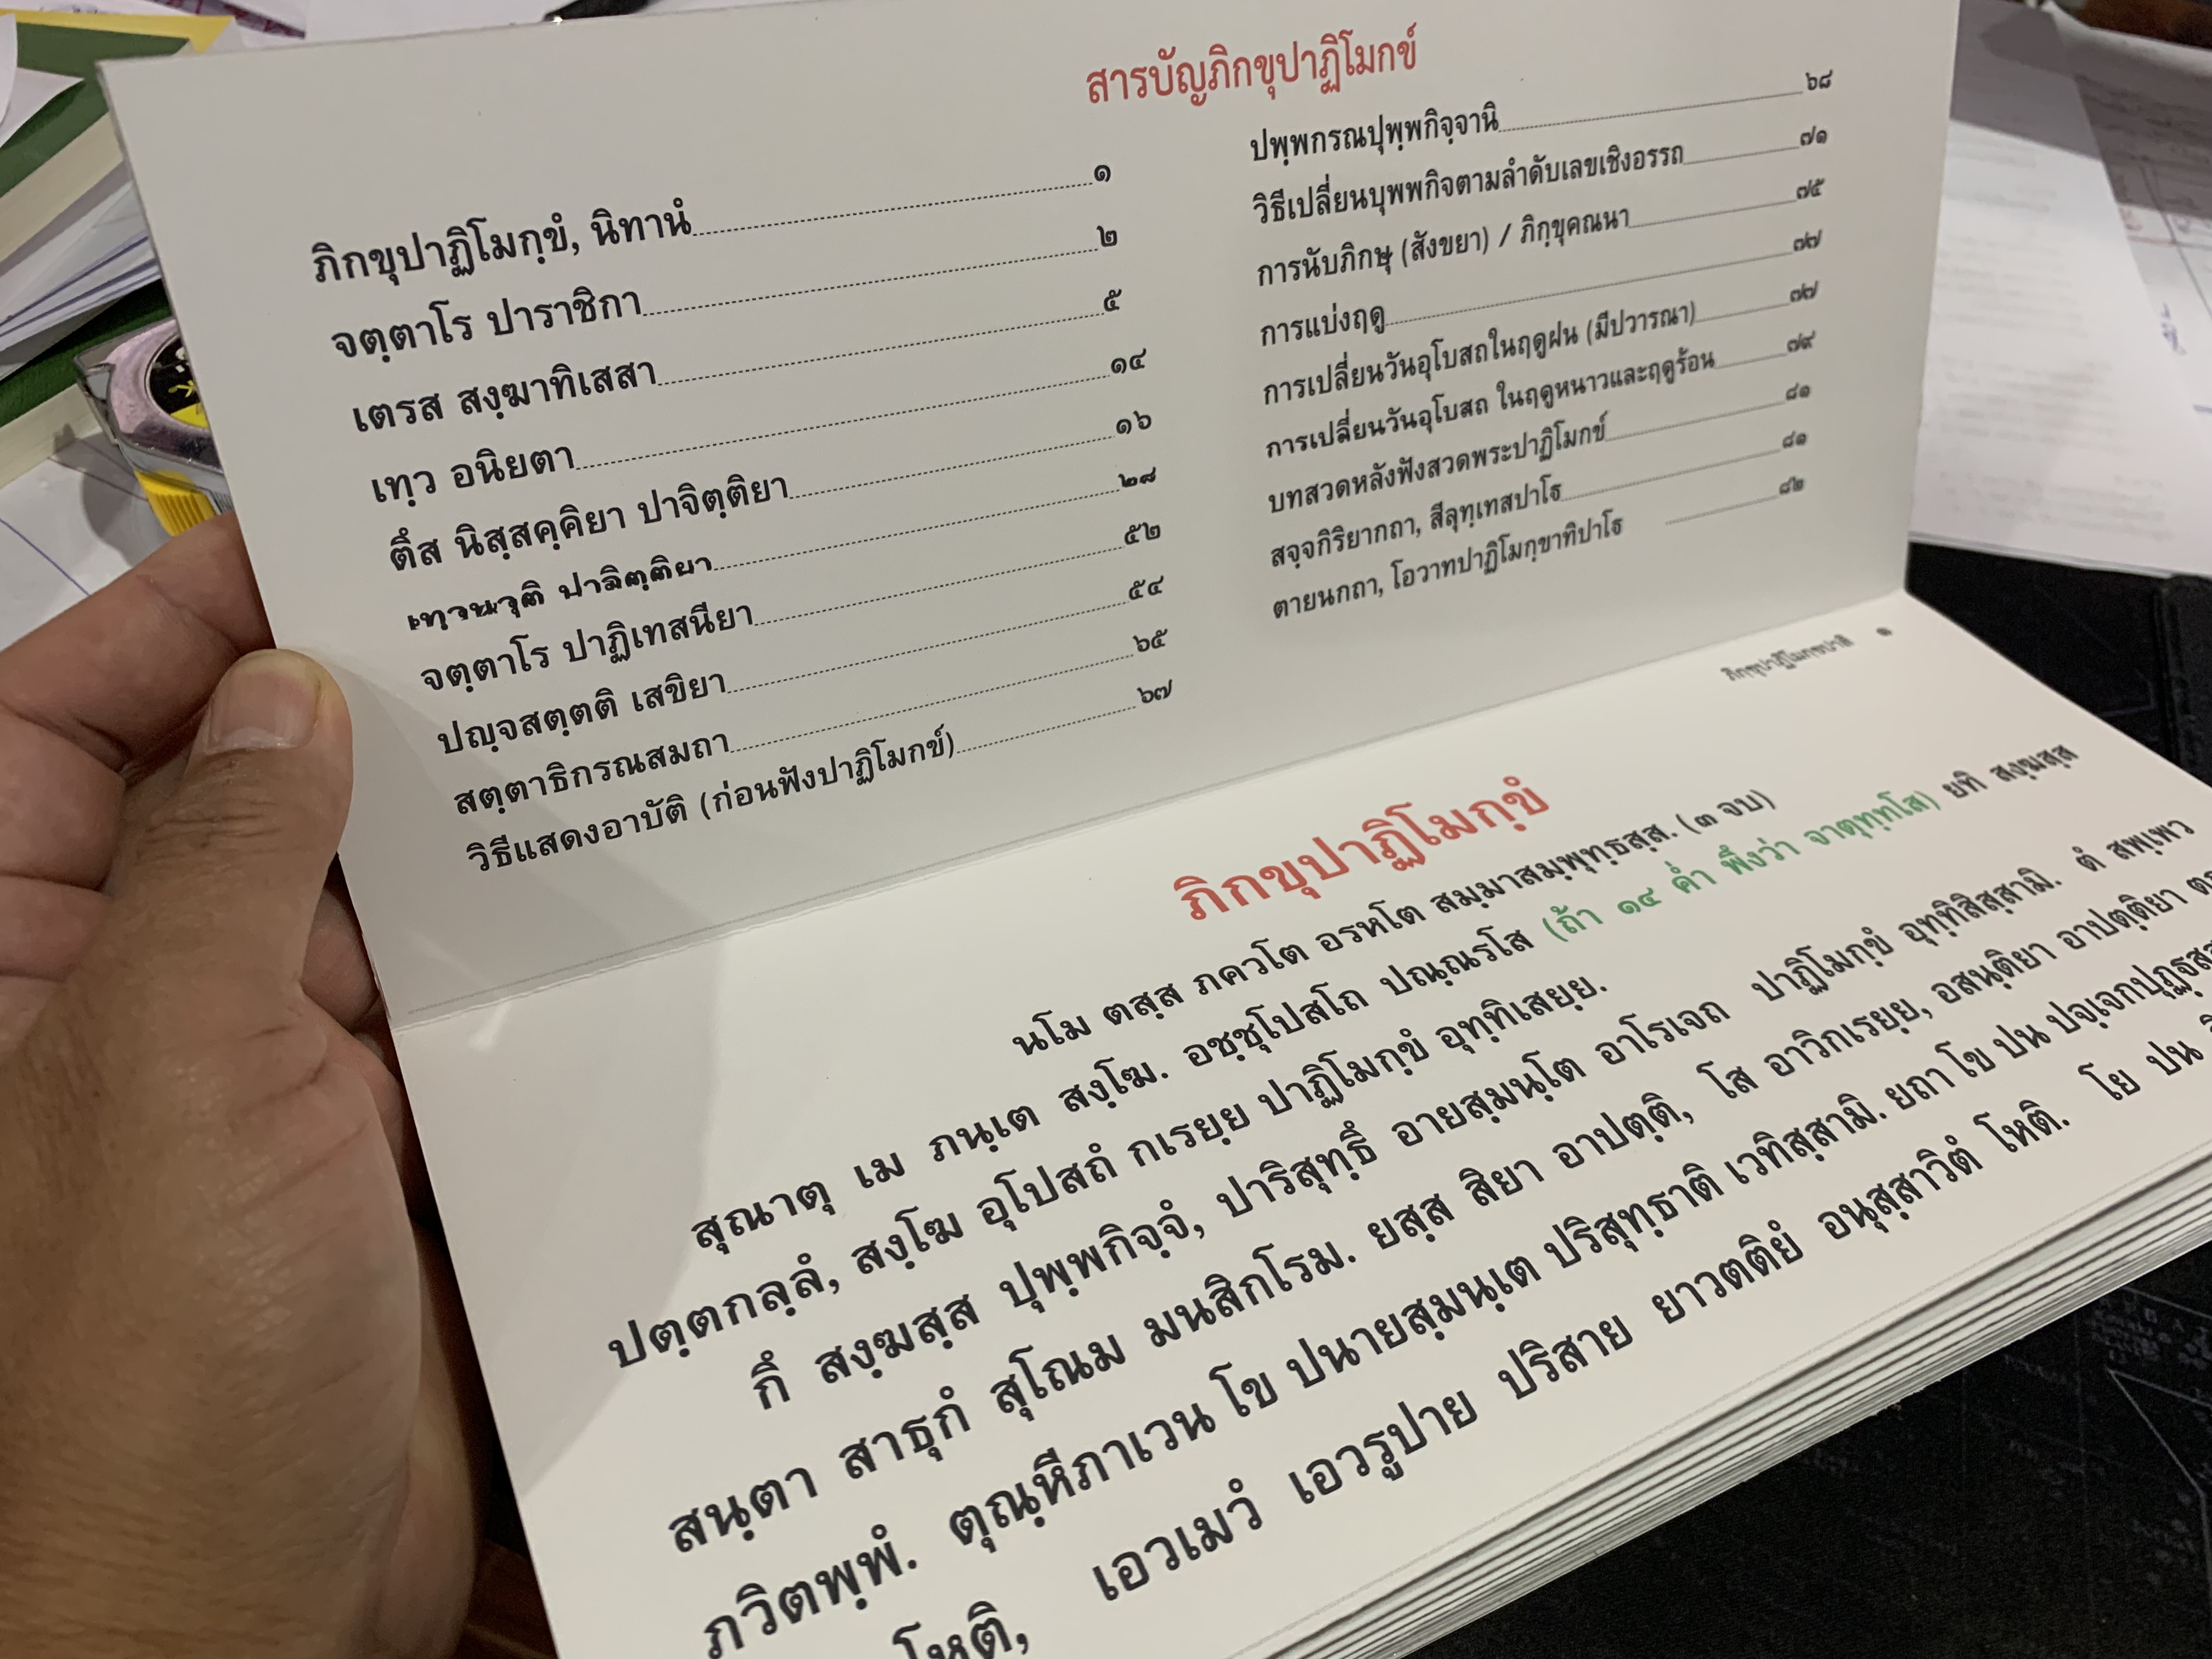 สารบัญภิกขุปาฏิโมกข์
ภิกขุปาฏิโมกฺขํ, นิทานํ ๑
จตฺตาโร ปาราชิกา ๒
เตรส สงฺฆาทิเสสา ๕
เทฺว อนิยตา ๑๔
ตึส นิสฺสคฺคิยา ปาจิตฺติยา ๑๖
เทฺวนวุติ ปาจิตฺติยา ๒๘
จตฺตาโร ปาฏิเทสนียา ๕๒
ปญฺจสตฺตติ เสขิยา ๕๔
สตฺตาธิกรณสมถา ๖๕
วิธีแสดงอาบัติ (ก่อนฟังปาฏิโมกข์) ๖๗
ปพฺพกรณปุพฺพกิจฺจานิ ๖๘
วิธีเปลี่ยนบุพพกิจตามลำดับเลขเชิงอรรถ ๗๑
การนับภิกษุ (สังขยา) / ภิกฺขุคณนา ๗๕
การแบ่งฤดู ๗๗
การเปลี่ยนวันอุโบสถในฤดูฝน (มีปวารณา) ๗๗
การเปลี่ยนวันอุโบสถ ในฤดูหนาวและฤดูร้อน ๗๙
บทสวดหลังฟังสวดพระปาฏิโมกข์ ๘๑
สจฺจกิริยากถา, สีลุทฺเทสปาโธ ๘๑
ตายนกถา, โอวาทปาฏิโมกฺขาทิปาโธ ๘๒
ภิกฺขุปาฏิโมกฺขปาลิ ๑
ภิกขุปาฏิโมกฺขํ
นโม ตสฺส ภควโต อรหโต สมฺมาสมฺพุทฺธสฺส. (๓ จบ)
สุณาตุ เม ภนฺเต สงฺโฆ. อชฺชุโปสโถ ปณฺณรโส (ถ้า ๑๔ ค่ำ พึงว่า จาตุทฺทโส) ยทิ สงฺฆสฺส
ปตฺตกลฺลํ, สงฺโฆ อุโปสถํ กเรยฺย ปาฏิโมกฺขํ อุทฺทิเสยฺย.
กึ สงฺฆสฺส ปุพฺพกิจฺจํ, ปาริสุทฺธึ อายสฺมนฺโต อาโรเจถ ปาฏิโมกฺขํ อุทฺทิสิสฺสามิ. ตํ สพฺเพว
สนฺตา สาธุกํ สุโณม มนสิกโรม. ยสฺส สิยา อาปตฺติ, โส อาวิกเรยฺย, อสนฺติยา อาปตฺติยา
ภวิตพฺพํ. ตุณฺหีภาเวน โข ปนายสฺมนฺเต ปริสุทฺธาติ เวทิสฺสามิ. ยถา โข ปน ปจฺเจกปุฏฺฐสฺส
โหติ, เอวเมวํ เอวรูปาย ปริสาย ยาวตติยํ อนุสฺสาวิตํ โหติ. โย ปน